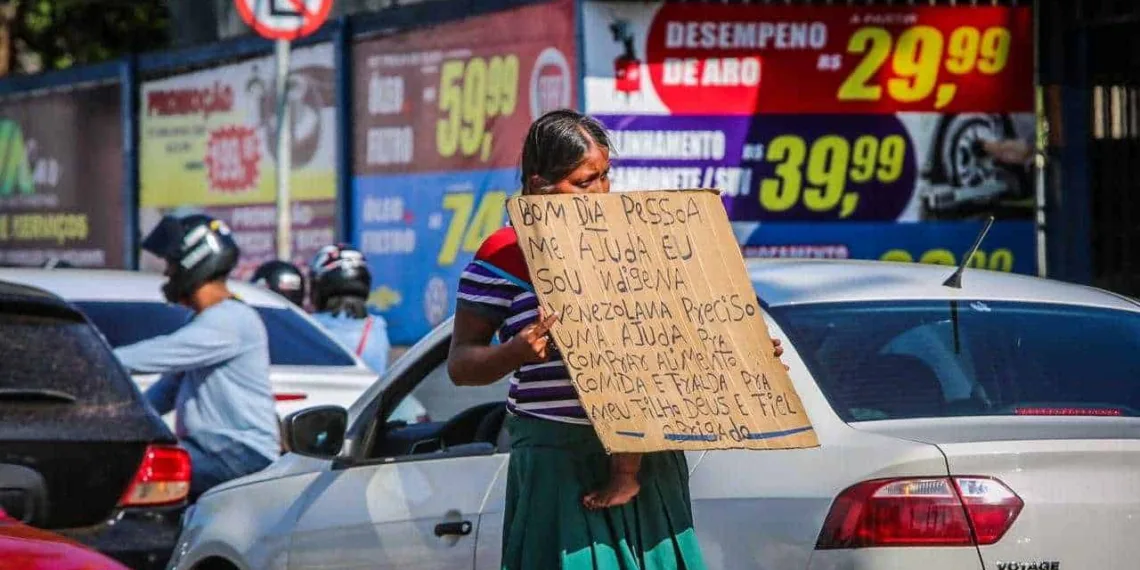 PROMOÇÃO
199,90
SERVIÇOS
ÓLEO
FILTRO
59,99
ÓLEO
FILTRO
R$ 74,
A PARTIR
DESEMPENO
DE ARO
R$ 29,99
R$ 39,99
BOM DIA PESSOA
ME AJUDA EU
SOU INDIGENA
VENEZOLANA PRECISO
UMA AJUDA PRA
COMPRAR ALIMENTO
COMIDA E FRALDA PRA
MEU FILHO DEUS E FIEL
OBRIGADO
VOYAGE